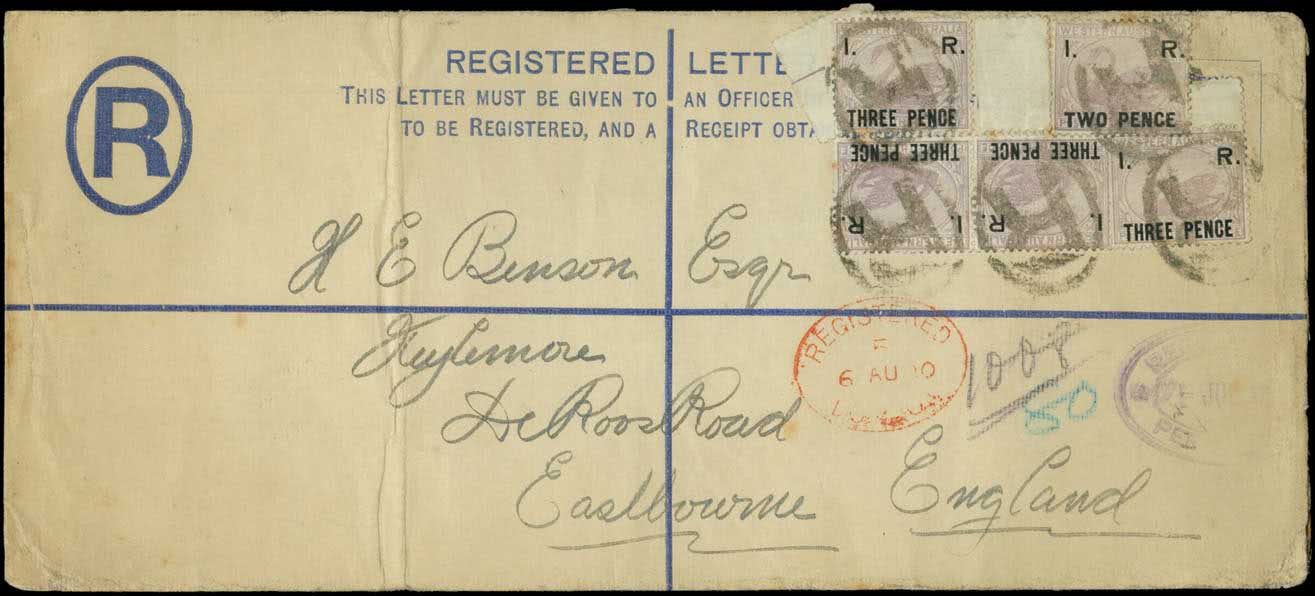 R
REGISTERED LETTE
THIS LETTER MUST BE GIVEN TO AN OFFICER
TO BE REGISTERED, AND A RECEIPT OBTA
WESTERN AUSTRALIA
I. R.
THREE PENCE
WESTERN AUST
I. R.
TWO PENCE
THREE PENCE
I. R.
THREE PENCE
I. R.
I. R.
THREE PENCE
H E Benson Esqr
Kylemore
De Roos Road
Eastbourne England
REGISTERED
6 AU 00
LONDON
1008